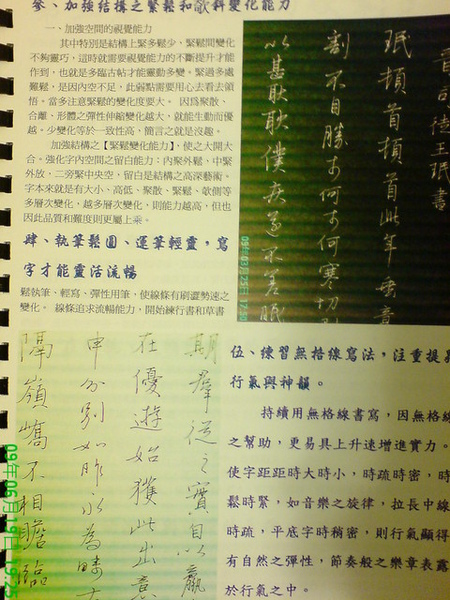 參、加強結構之緊鬆和欹斜變化能力
一、加強空間的視覺能力
其中特別是結構上緊多鬆少，緊鬆間變化
不夠靈巧，這時就需要視覺能力的不斷提升才能
作到，也就是多臨古帖才能靈動多變。緊過多處
難鬆，是因內空不足，此弱點需要用心去看去領
悟。當多注意緊鬆的變化度要大。因為聚散、
合離、形體之彈性伸縮變化越大，就能生動而優
越。少變化等於一致性高，簡言之就是沒趣。
加強結構之【緊鬆變化能力】，使之大開大
合。強化字內空間之留白能力：內聚外鬆、中緊
外放、二旁緊中央空，留白是結構之高深藝術。
字本來就是有大小、高低、聚散、緊鬆、欹側等
多層次變化，越多層次變化，則能力越高，但也
因此品質和難度則更屬上乘。
肆、執筆鬆圓、運筆輕靈，寫
字才能靈活流暢
鬆執筆、輕寫、彈性用筆，使線條有刷澀勢速之
變化。線條追求流暢能力，開始練行書和草書
晉司徒王珉書
珉頓首頓首此年垂竟
割不自勝奈何奈何寒切
以甚耿耿僕疾遂不差眠
09年03月25日 17:50
伍、練習無格線寫法，注重提昇
行氣與神韻。
持續用無格線書寫，因無格線
之幫助，更易具上升速增進實力。
使字距距時大時小，時疏時密，時
鬆時緊，如音樂之旋律，拉長中線
時疏，平底字時稍密，則行氣顯得
有自然之彈性，節奏般之樂章表露
於行氣之中。
期群從之寶自以羸
在優遊始獲此出意
申分別如昨永為疇古
隔嶺嶠不相瞻臨
09年06月19日 17:25